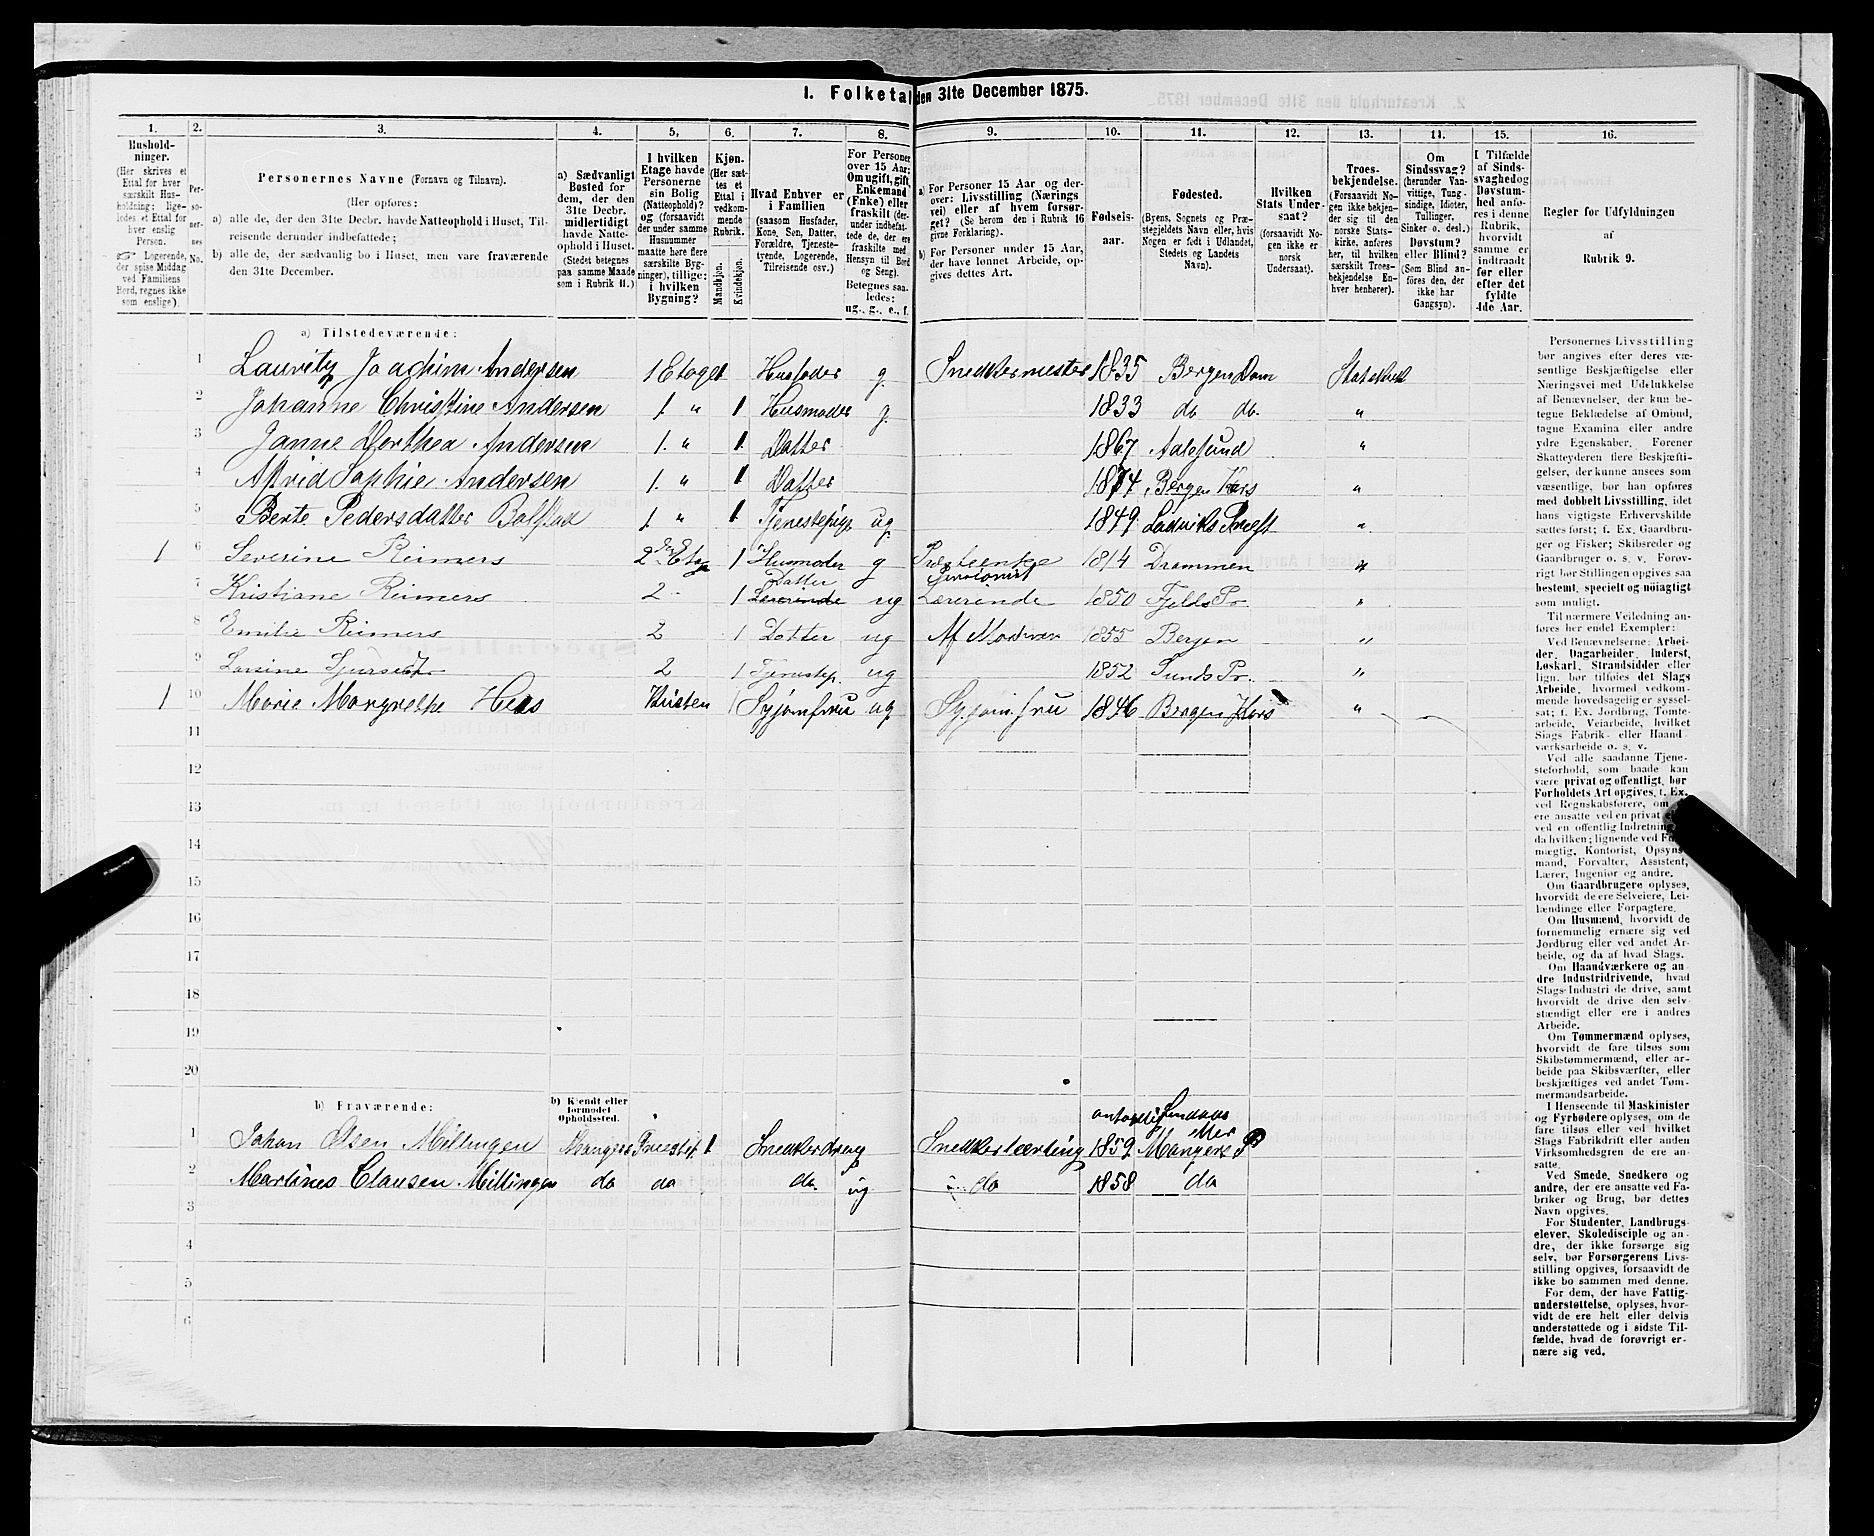 1. Folketal den 31te December 1875.
1. 2. 3. 4. 5, 6. 7. 8. 9. 10. 11. 12. 13. 14. 15. 16.
Hushold-
ninger.
(Her skrives et
Ettal for hver
særskilt Hus-
holdning; lige-
ledes et Ettal for
hver enslig
Person.
☞ Logerende,
der spise Middag
ved Familiens
Bord, regnes ikke
som enslige).
Per-
so-
ner-
nes
No.
Personernes Navne (Fornavn og Tilnavn).
(Her opføres:
a) alle de, der den 31te Decbr. havde Natteophold i Huset, Til-
reisende derunder indbefattede;
b) alle de, der sædvanlig bo i Huset, men vare fraværende
den 31te December.
a) Sædvanligt
Bosted for
dem, der den
31te Decbr.
midlertidigt
havde Natte-
ophold i Huset.
(Stedet betegnes
paa samme Maade
som i Rubrik 11.)
I hvilken
Etage havde
Personerne
sin Bolig
(Natteophold)?
og (forsaavidt
der under samme
Husnummer
maatte høre flere
særskilte Byg-
ninger), tillige:
i hvilken
Bygning?
Kjøn.
(Her sæt-
tes et
Ettal i
vedkom-
mende
Rubrik.
Mandkjøn.
Kvindekjøn.
Hvad Enhver er
i Familien
(saasom Husfader,
Kone, Søn, Datter,
Forældre, Tjeneste-
tyende, Logerende,
Tilreisende osv.)
For Personer
over 15 Aar:
Om ugift, gift,
Enkemand
(Enke) eller
fraskilt (der-
under indbefat-
tede de, der ere
fraskilte med
Hensyn til Bord
og Seng).
Betegnes saa-
ledes:
ug., g., e., f.
a) For Personer 15 Aar og der-
over: Livsstilling (Nærings
vei) eller af hvem forsør-
get? (Se herom den i Rubrik 16
givne Forklaring).
b) For Personer under 15 Aar,
der have lønnet Arbeide, op-
gives dettes Art.
Fødsels-
aar.
Fødested.
(Byens, Sognets og Præ-
stegjeldets Navn eller, hvis
Nogen er født i Udlandet,
Stedets og Landets
Navn).
Hvilken
Stats Under-
saat?
(forsaavidt No-
gen ikke er
norsk
Undersaat).
Troes-
bekjendelse.
(Forsaavidt No-
gen ikke bekjen-
der sig til den
norske Stats-
kirke, anføres
her, til hvilken
særskilt Troes-
bekjendelse En-
hver henhører).
Om
Sindssvag?
(herunder Van-
vittige, Tung-
sindige, Idioter,
Tullinger,
Sinker o. desl.)
Døvstum?
eller Blind?
(Som Blind an-
føres den, der
ikke har
Gangsyn).
I Tilfælde
af Sinds-
svaghed og
Døvstum-
hed anfø-
res i denne
Rubrik,
hvorvidt
samme er
indtraadt
før eller
efter det
fyldte
4de Aar.
Regler for Udfyldningen
af
Rubrik 9.
a) Tilstedeværende:
1 Lauritz Joachim Andersen 1 Etage 1 Husfader g. Snedkermester 1835 Bergen Dom Statskirk
2 Johanne Christine Andersen 1. " 1 Husmoder g. 1833 do do. "
3 Janne Dorthea Andersen 1. " 1 Datter 1867 Aalesund "
4 Astrid Sophie Andersen 1. " 1 Datter 1874 Bergen Kors "
5 Berte Pedersdatter 1. " 1 Tjenestepige ug. 1849 Ladviks Præst "
1 6 Severine Reimers 2den Etage 1 Husmoder g Præsteenke Pensionist 1814 Drammen "
7 Kristiane Reimers 2 1 Datter Lærerinde ug Lærerinde 1850 Fjelds Pr. "
8 Emilie Reimers 2 1 Datter ug Af Moderen 1855 Bergen "
9 Larsine 2 1 Tjenestep. ug 1852 Sunds Pr. "
1 10 Marie Margrethe Hess Kvisten 1 Syjomfru ug Syjomfru 1846 Bergen Kors "
11
12
13
14
15
16
17
18
19
20
b) Fraværende:
b) Kjendt eller
formodet
Opholdssted.
antagelig
1 Johan Olsen Millingen Mangers Præstegj. 1 Snedkerdreng Snedkerlærling 1859 Mangers P
2 Martines Clausen Millingen do do do. ug do 1858 do
3
4
5
6
Personernes Livsstilling
bør angives efter deres væ-
sentlige Beskjæftigelse eller
Næringsvei med Udelukkelse
af Benævnelser, der kun be-
tegne Beklædelse af Ombud,
tagne Examina eller andre
ydre Egenskaber. Forener
Skatteyderen flere Beskjæfti-
gelser, der kunne ansees som
væsentlige, bør han opføres
med dobbelt Livsstilling, idet
hans vigtigste Erhvervskilde
sættes først; f. Ex. Gaardbru-
ger og Fisker; Skibsreder og
Gaardbruger o. s. v. Forøv-
rigt bør Stillingen opgives saa
bestemt, specielt og nøiagtigt
som muligt.
Til nærmere Veiledning an-
føres her endel Exempler:
Ved Benævnelserne: Arbei-
der, Dagarbeider, Inderst,
Løskarl, Strandsidder eller
lign. bør tilføies det Slags
Arbeide, hvormed vedkom-
mende hovedsagelig er syssel-
sat; f. Ex. Jordbrug, Tomte-
arbeide, Veiarbeide, hvilket
Slags Fabrik- eller Haand-
værksarbeide o. s. v.
Ved alle saadanne Tjene-
steforhold, som baade kan
være privat og offentligt, bør
Forholdets Art opgives, f. Ex.
ved Regnskabsførere, om
ere ansatte ved en privat
ved en offentlig Indretning
da hvilken; lignende ved
mægtig, Kontorist, Opsyns-
mand, Forvalter, Assistent,
Lærer, Ingeniør og andre.
Om Gaardbrugere oplyses,
hvorvidt de ere Selveiere, Lei-
lændinge eller Forpagtere.
Om Husmænd, hvorvidt de
fornemmelig ernære sig ved
Jordbrug eller ved andet Ar-
beide, og da af hvad Slags.
Om Haandværkere og an-
dre Industridrivende, hvad
Slags Industri de drive, samt
hvorvidt de drive den selv-
stændigt eller ere i andres
Arbeide.
Om Tømmermænd oplyses,
hvorvidt de fare tilsøs som
Skibstømmermænd, eller ar-
beide paa Skibsværfter, eller
beskjæftiges ved andet Tøm-
mermandsarbeide.
I Henseende til Maskinister
og Fyrbødere oplyses, om de
fare tilsøs eller ved hvilket
Slags Fabrikdrift eller anden
Virksomhedsgren de ere an-
satte.
Ved Smede, Snedkere og
andre, der ere ansatte ved Fa-
briker og Brug, bør dettes
Navn opgives.
For Studenter, Landbrugs-
elever, Skoledisciple og an-
dre, der ikke forsørge sig
selv, bør Forsørgerens Livs-
stilling opgives, forsaavidt de
ikke bo sammen med denne.
For dem, der have Fattig-
understøttelse, oplyses, hvor-
vidt de ere helt eller delvis
understøttede og i sidste Til-
fælde, hvad de forøvrigt er-
nære sig ved.